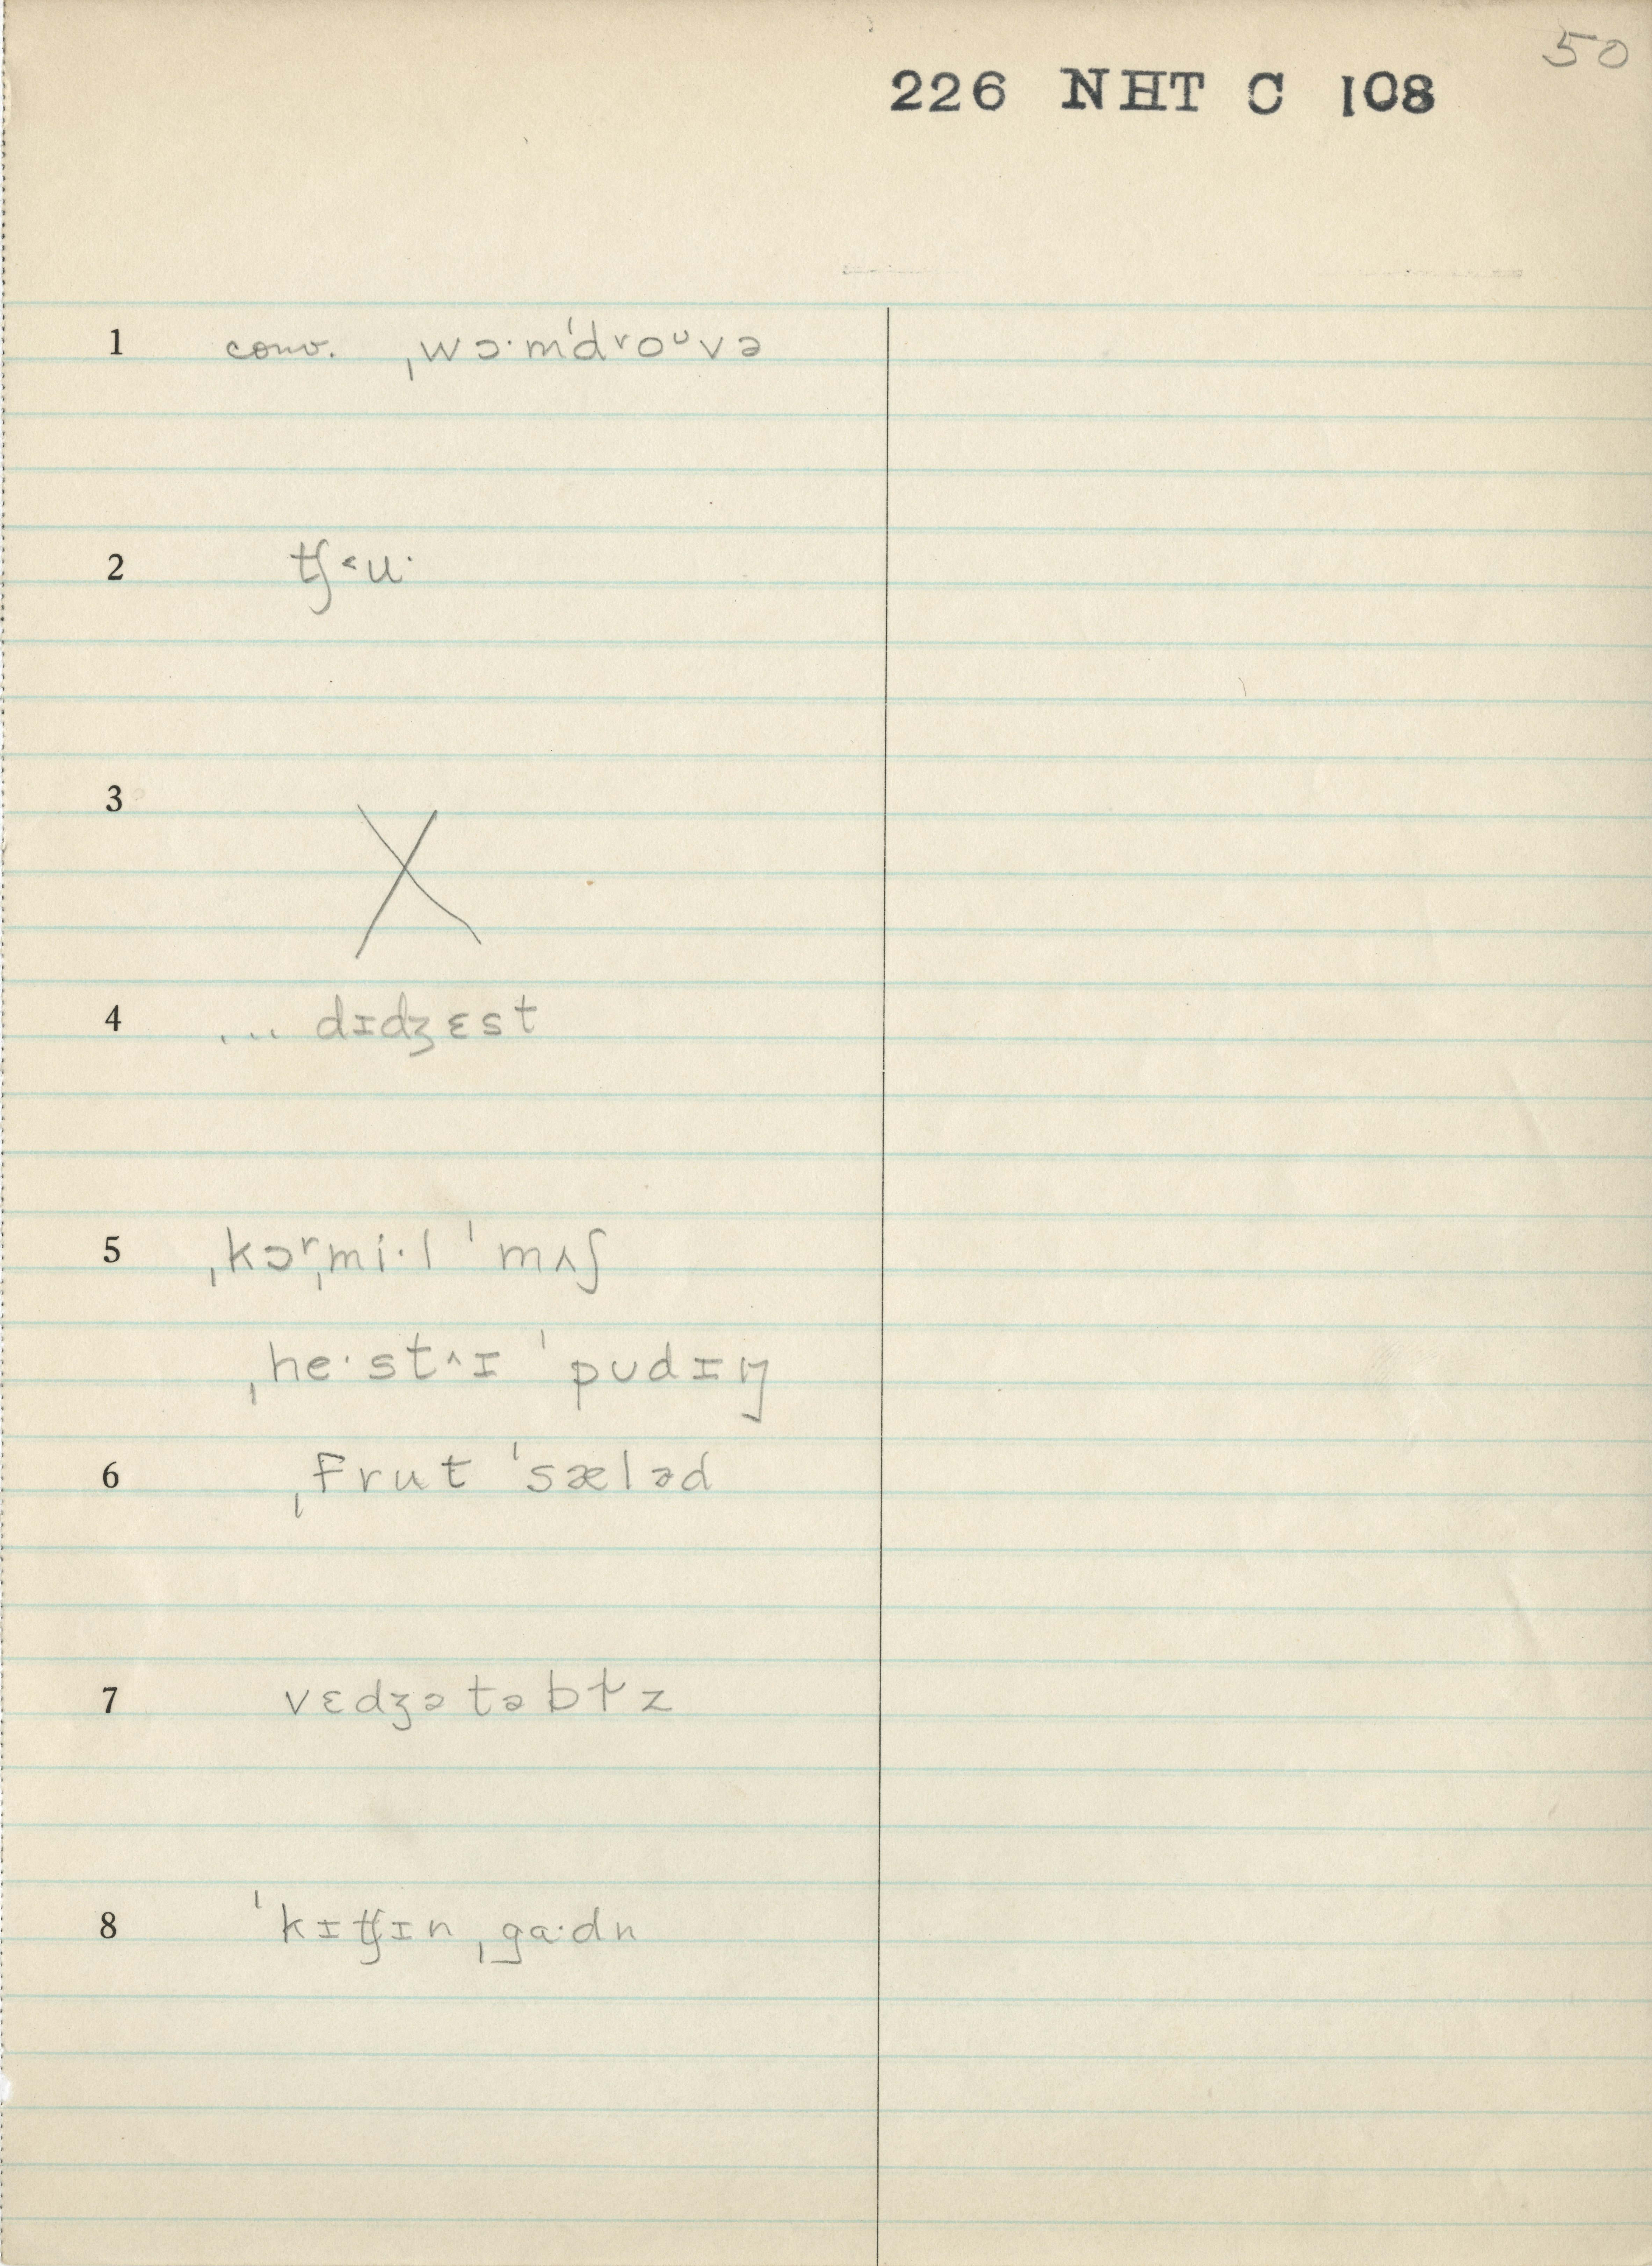 50
226 NHT C 108
1 conv. ˌwɔ·mˈdʳoᵘvə
2 ʧ˂u·
3 X
4 ... dɪdʒɛst
5 ˌkɔʳˌmi·l ˈmʌʃ
ˌhe·st˄ɪ ˈpʊdɪŋ
6 ˌfrut ˈsæləd
7 vɛdʒətəbɫz
8 ˈkɪʧɪn ˌga·dn